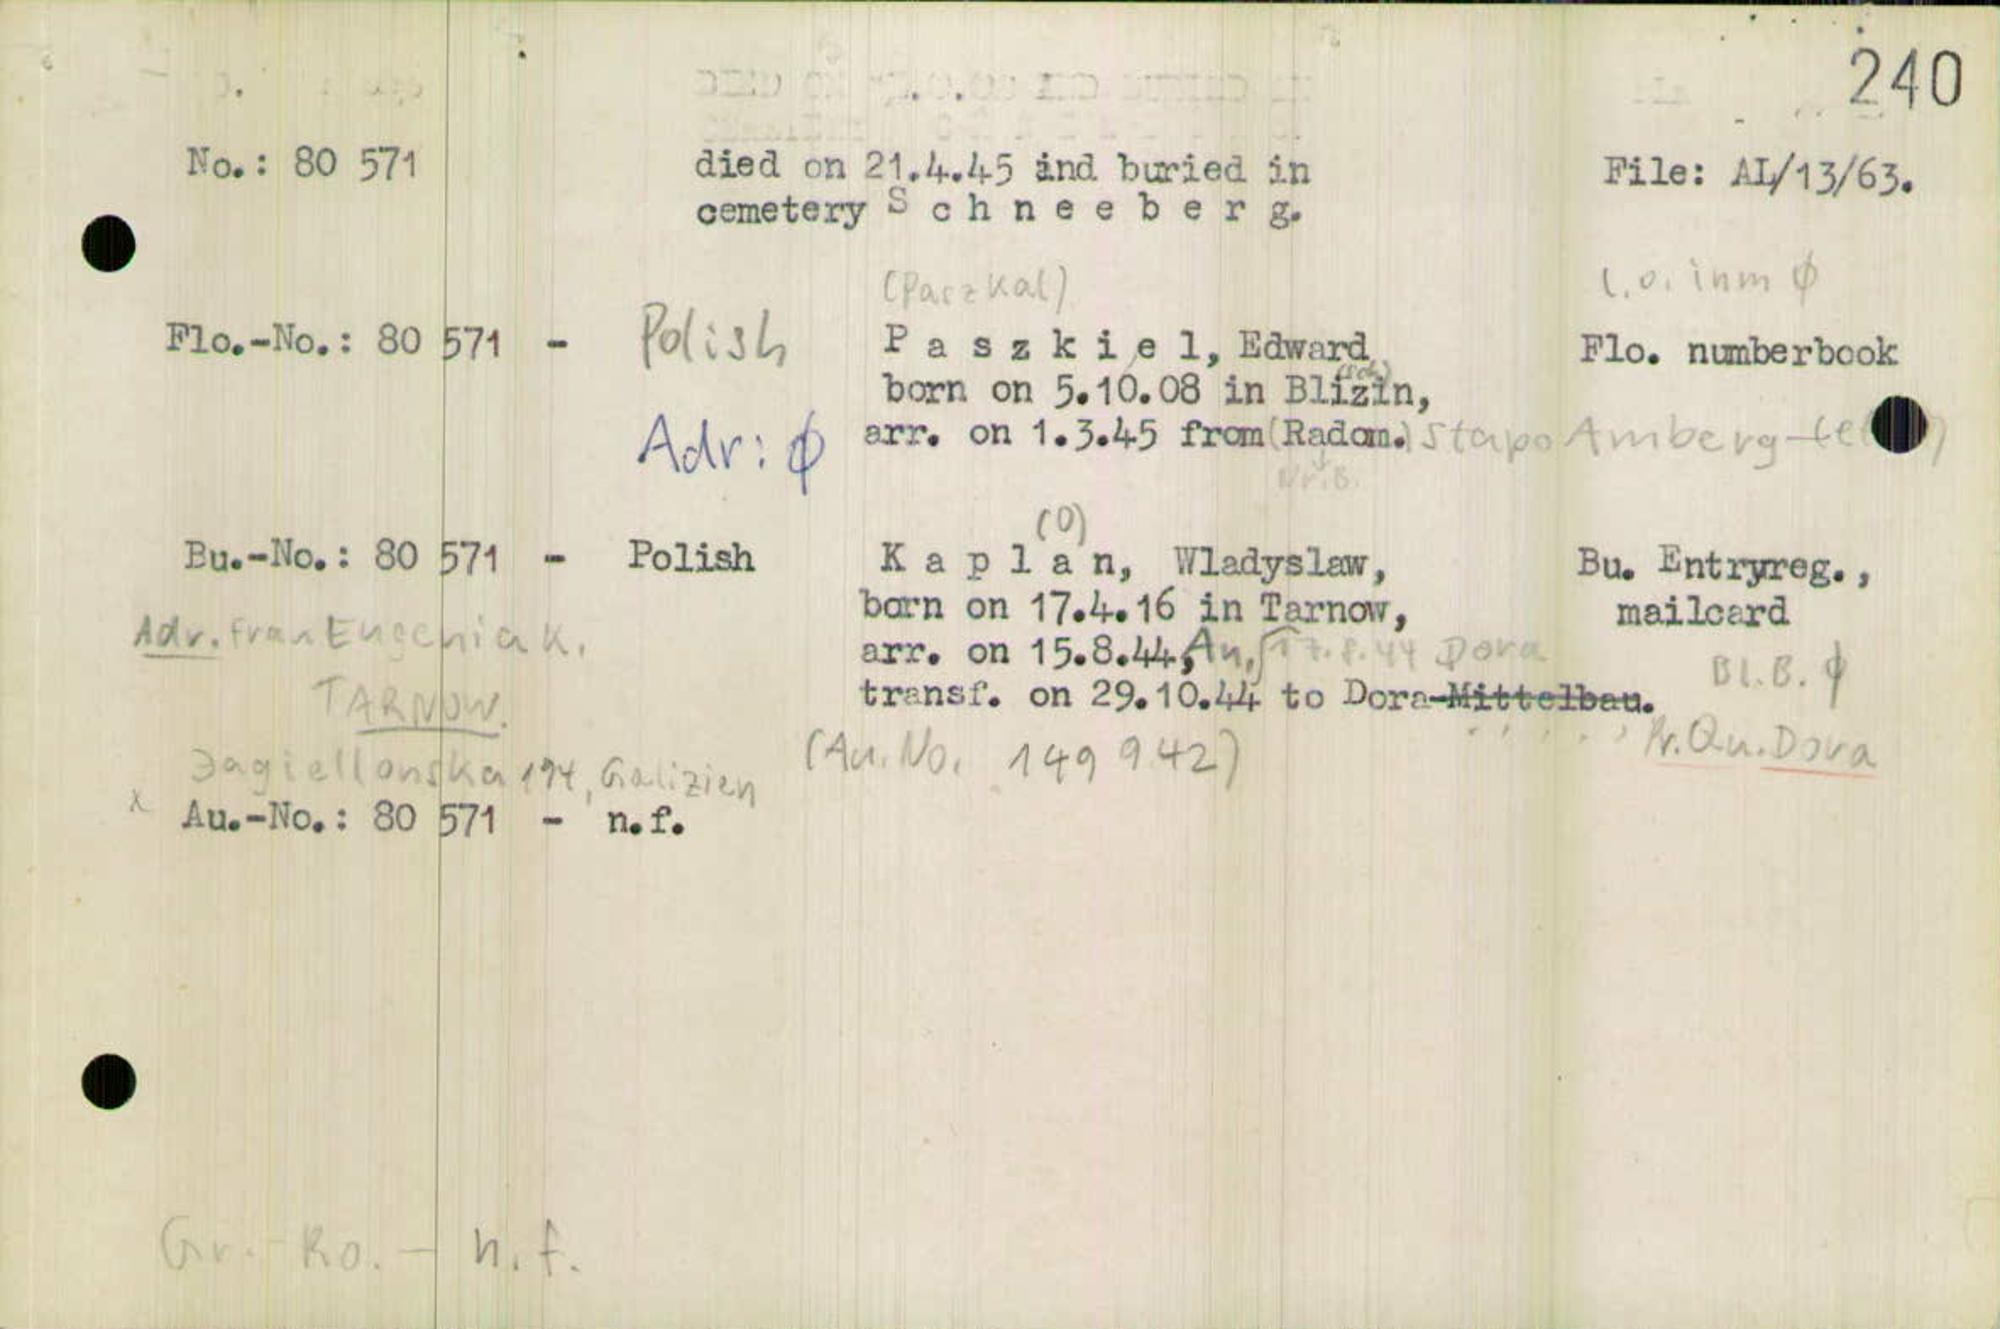 240
No.: 80 571
died on 21.4.45 and buried in
cemetery S c h n e e b e r g.
File: AL/13/63.
(Paszkal)
Flo.-No.: 80 571 - Polish
P a s z k i e l, Edward
Flo. numberbook
born on 5.10.08 in Blizin,
Adr: ϕ
arr. on 1.3.45 from (Radom.) Stapo Amberg
Nr.B.
(0)
Bu.-No.: 80 571 - Polish
K a p l a n, Wladyslaw,
Bu. Entryreg.,
born on 17.4.16 in Tarnow,
mailcard
Adr. Frau Eugenia K.
arr. on 15.8.44, An. 17.8.44 Dora
Bl.B. ϕ
TARNOW.
transf. on 29.10.44 to Dora-Mittelbau.
Jagiellonska 194, Galizien
(Au. No. 149 942)
Pr.Qu.Dora
x Au.-No.: 80 571 - n.f.
Gr.-Ro. - n.f.